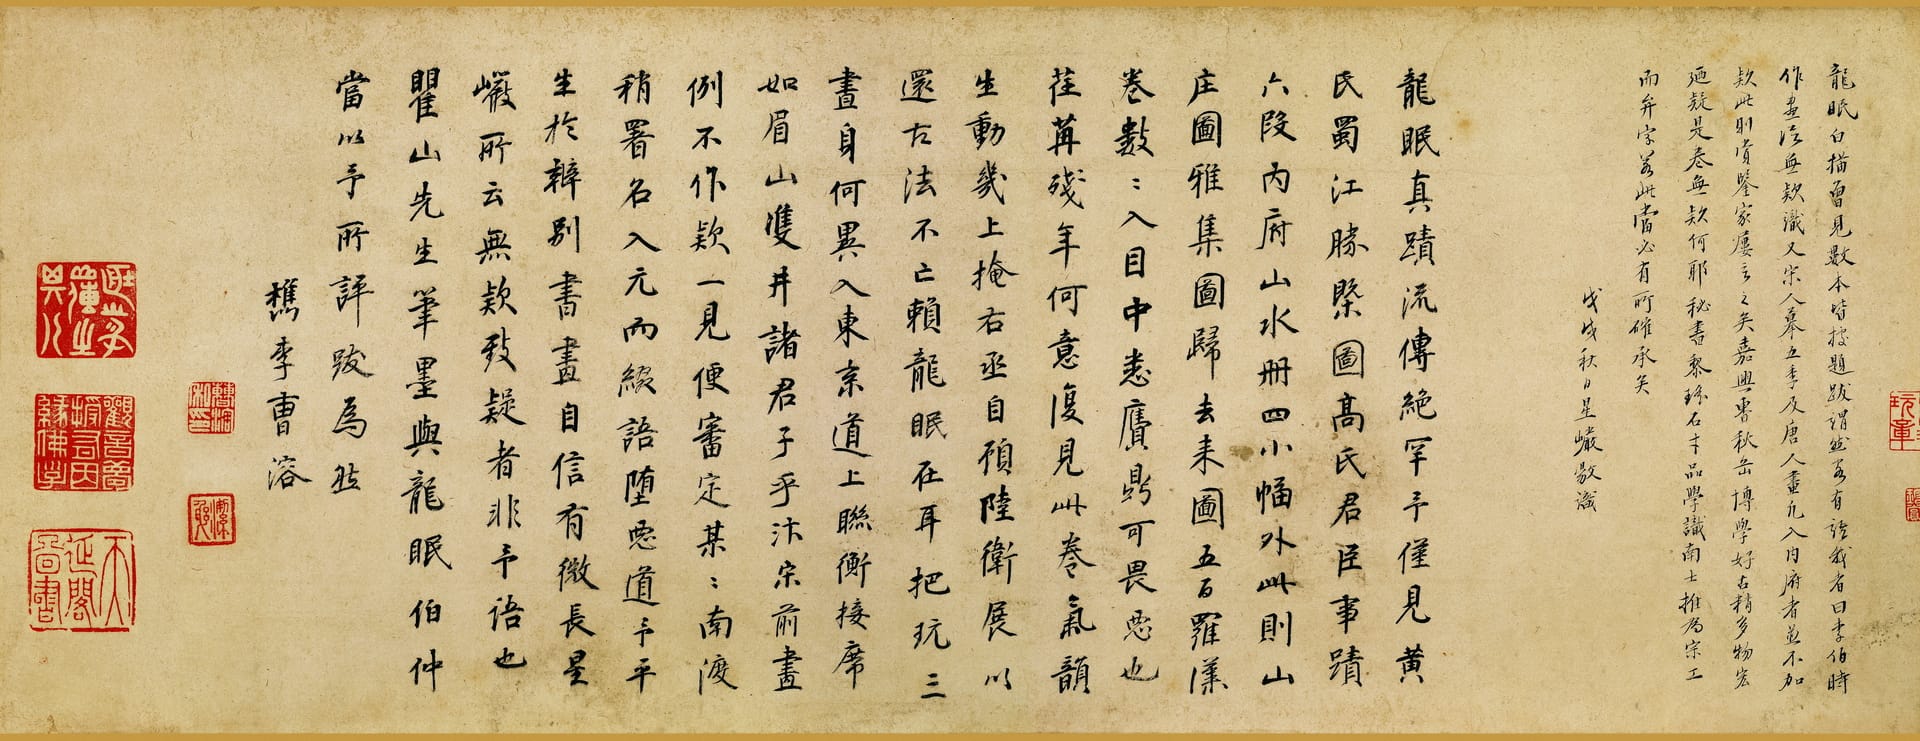 龍眠白描曾見數本皆按題跋謂然若有語我者曰李伯時
作畫從無欵識又宋人摹五季及唐人畫凡入內府者並不加
欵此則賞鑒家屢言之矣嘉興曹秋岳博學好古精多物宏
廼疑是卷無欵何耶秘書黎瑤石寸品學識南士推為宗工
而弁字若此當必有所確承矣
戊戌秋日星巖敬識
龍眠真蹟流傳絕罕予僅見黃
氏蜀江勝槩圖高氏君臣事蹟
六段內府山水冊四小幅外此則山
庄圖雅集圖歸去来圖五百羅漢
卷數〻入目中悉贋鼎可畏惡也
荏苒殘年何意復見此卷氣韻
生動幾上掩右丞自顧陸衛展以
還古法不亡賴龍眠在耳把玩三
晝身何異入東京道上聯衡接席
如眉山雙井諸君子乎汴宋前畫
例不作欵一見便審定某〻南渡
稍署名入元而綴語墮惡道予平
生於辨別書畫自信有微長星
巖所云無欵致疑者非予語也
瞿山先生筆墨與龍眠伯仲
當以予所評跋為然
檇李曹溶
曹溶